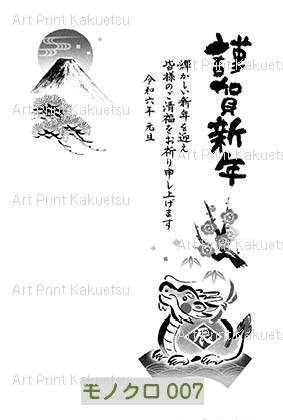 謹賀新年
輝かしい新年を迎え
皆様のご清福をお祈り申し上げます
令和六年 元旦
Art Print Kakuetsu
Art Print Kakuetsu
Art Print Kakuetsu
Art Print Kakuetsu
Art Print Kakuetsu
Art Print Kakuetsu
Art Print Kakuetsu
Art Print Kakuetsu
モノクロ 007